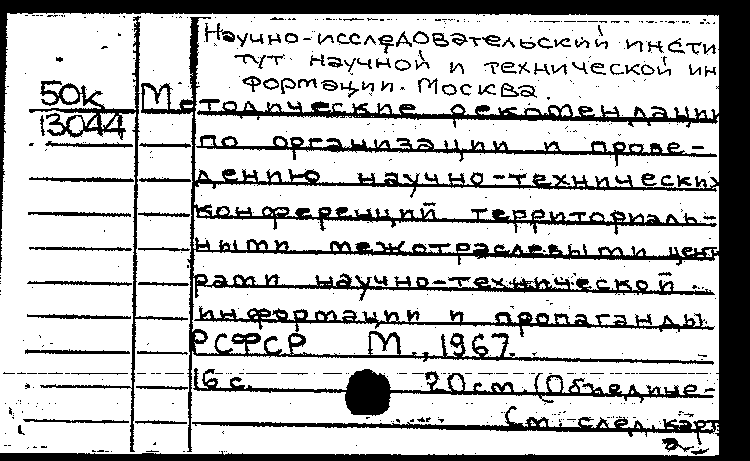 Научно-исследовательский инсти
тут научной и технической ин
формации. Москва.
50к Методические рекомендации
13044
по организации и прове-
дению научно-технических
конференций территориаль-
ными межотраслевыми цент
рами научно-технической
информации и пропаганды
РСФСР М., 1967.
16 с. 20 см. (Объедине-
См. след. карт